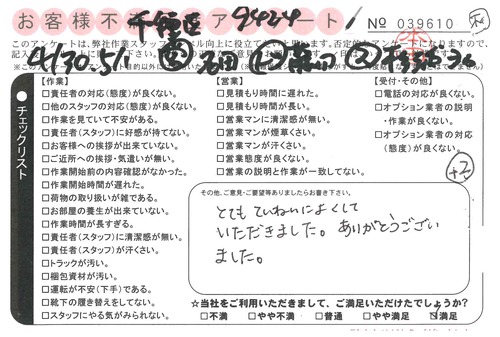 お客様不 アンケート!
千種区 9424
No 039610
このアンケートは、弊社作業スタッフ
【作業】
□責任者の対応(態度)が良くない。
□他のスタッフの対応(態度)が良くない。
□作業を見ていて不安がある。
□責任者(スタッフ)に好感が持てない。
□お客様への挨拶が出来ていない。
□ご近所への挨拶・気遣いが無い。
□作業開始前の内容確認がなかった。
□作業開始時間が遅れた。
□荷物の取り扱いが雑である。
□お部屋の養生が出来ていない。
□作業時間が長すぎる。
□責任者(スタッフ)に清潔感が無い。
□責任者(スタッフ)が汗くさい。
□トラックが汚い。
□梱包資材が汚い。
□運転が不安(下手)である。
□靴下の履き替えをしてない。
□スタッフにやる気がみられない。
【営業】
□見積もり時間に遅れた。
□見積もり時間が長い。
□営業マンに清潔感が無い。
□営業マンが煙草くさい。
□営業マンが汗くさい。
□営業態度が良くない。
□営業の説明と作業が一致してない。
【受付・その他】
□電話の対応が良くない。
□オプション業者の説明
・作業が良くない。
□オプション業者の対応
(態度)が良くない。
●チェックリスト
+2
その他、ご意見・ご要望等ありましたらお書き下さい。
とても ていねいによくして
いただきました。ありがとうござい
ました。
☆当社をご利用いただきまして、ご満足いただけたでしょうか?
□不満 □やや不満 □普通 □やや満足 ☑満足